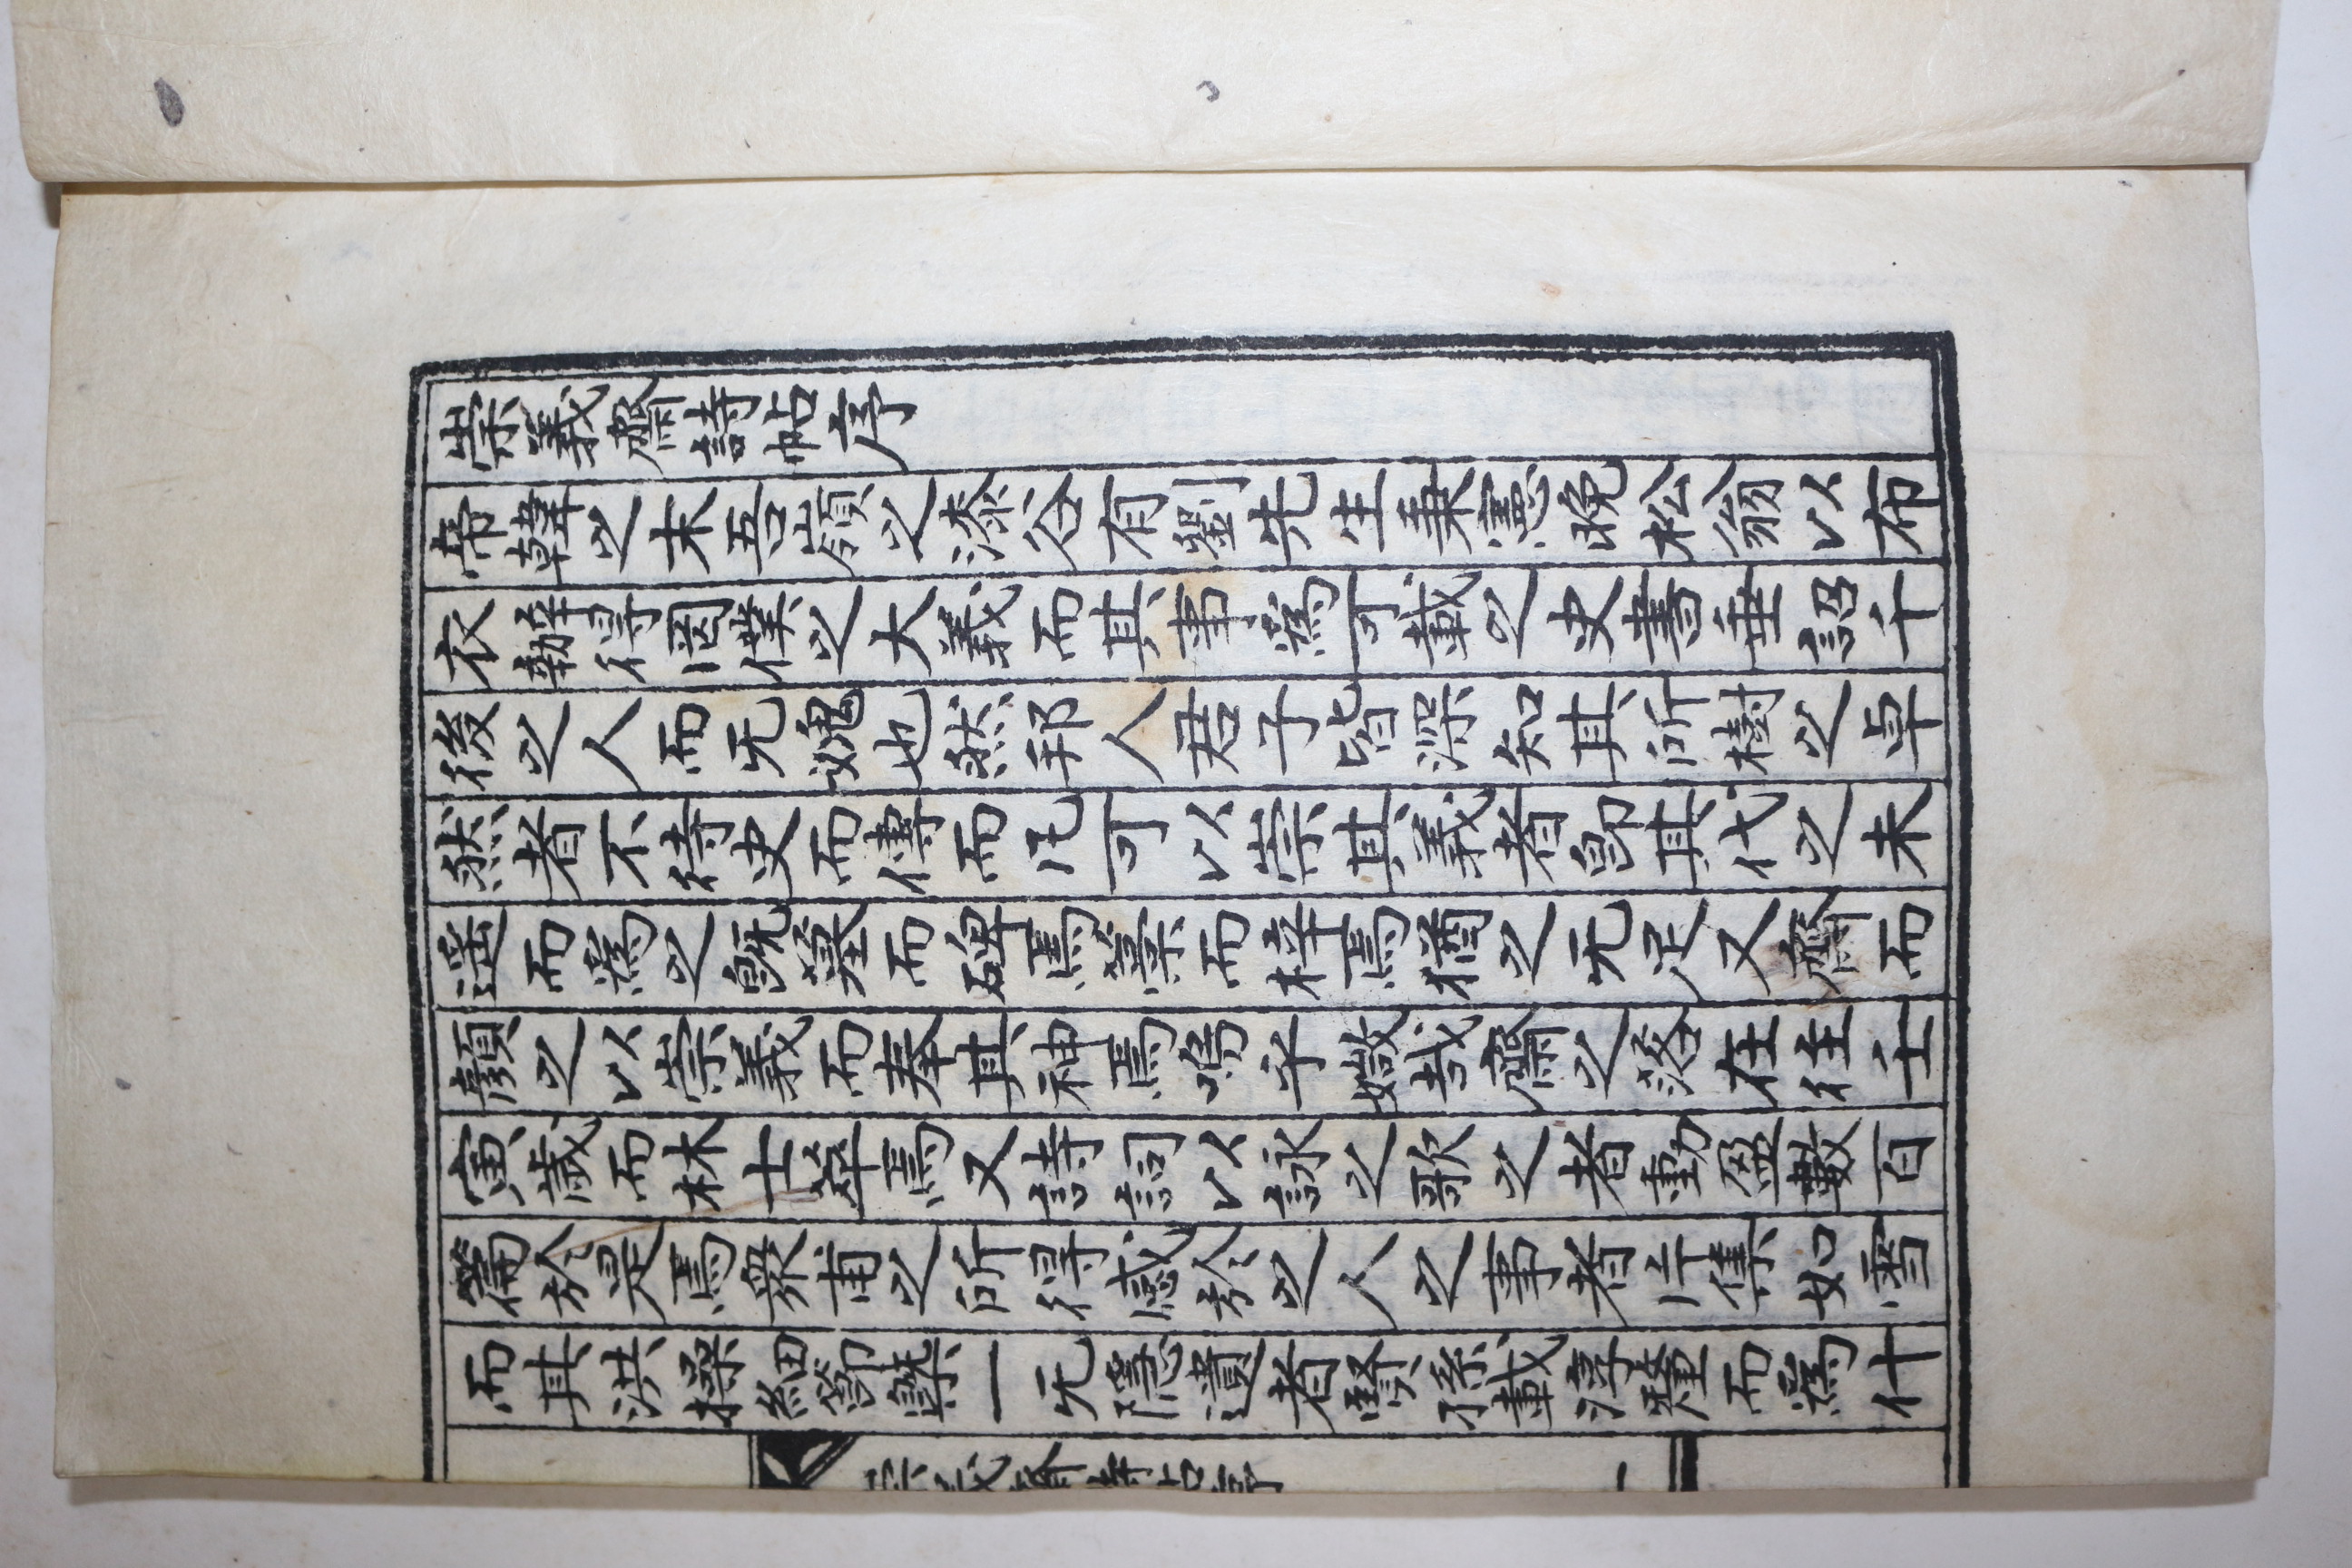 崇義齋詩帖序
帝韓之末吾嶺之漆谷有劉先生秉憲晩松翁以布
衣辦得罔僕之大義而其事爲可載之史書垂詔千
後之人而旡媿也然邦人君子皆深知其所樹之卓
然者不待史而傳而凡可以崇其義者卽其代之未
遥而爲之旣墓而碑焉藁而梓焉猶之旡足又齋而
顔之以崇義而奉其神焉嗚乎媺哉齋之落在往壬
寅歲而林士萃焉又詩詞以詠之歌之者動盈數百
篇於是焉衆甫之所得感於之人之事者片集如雪
而其洪操細節槩一旡隱遺者賢孫載淳釐而爲什
崇義齋詩帖序
一